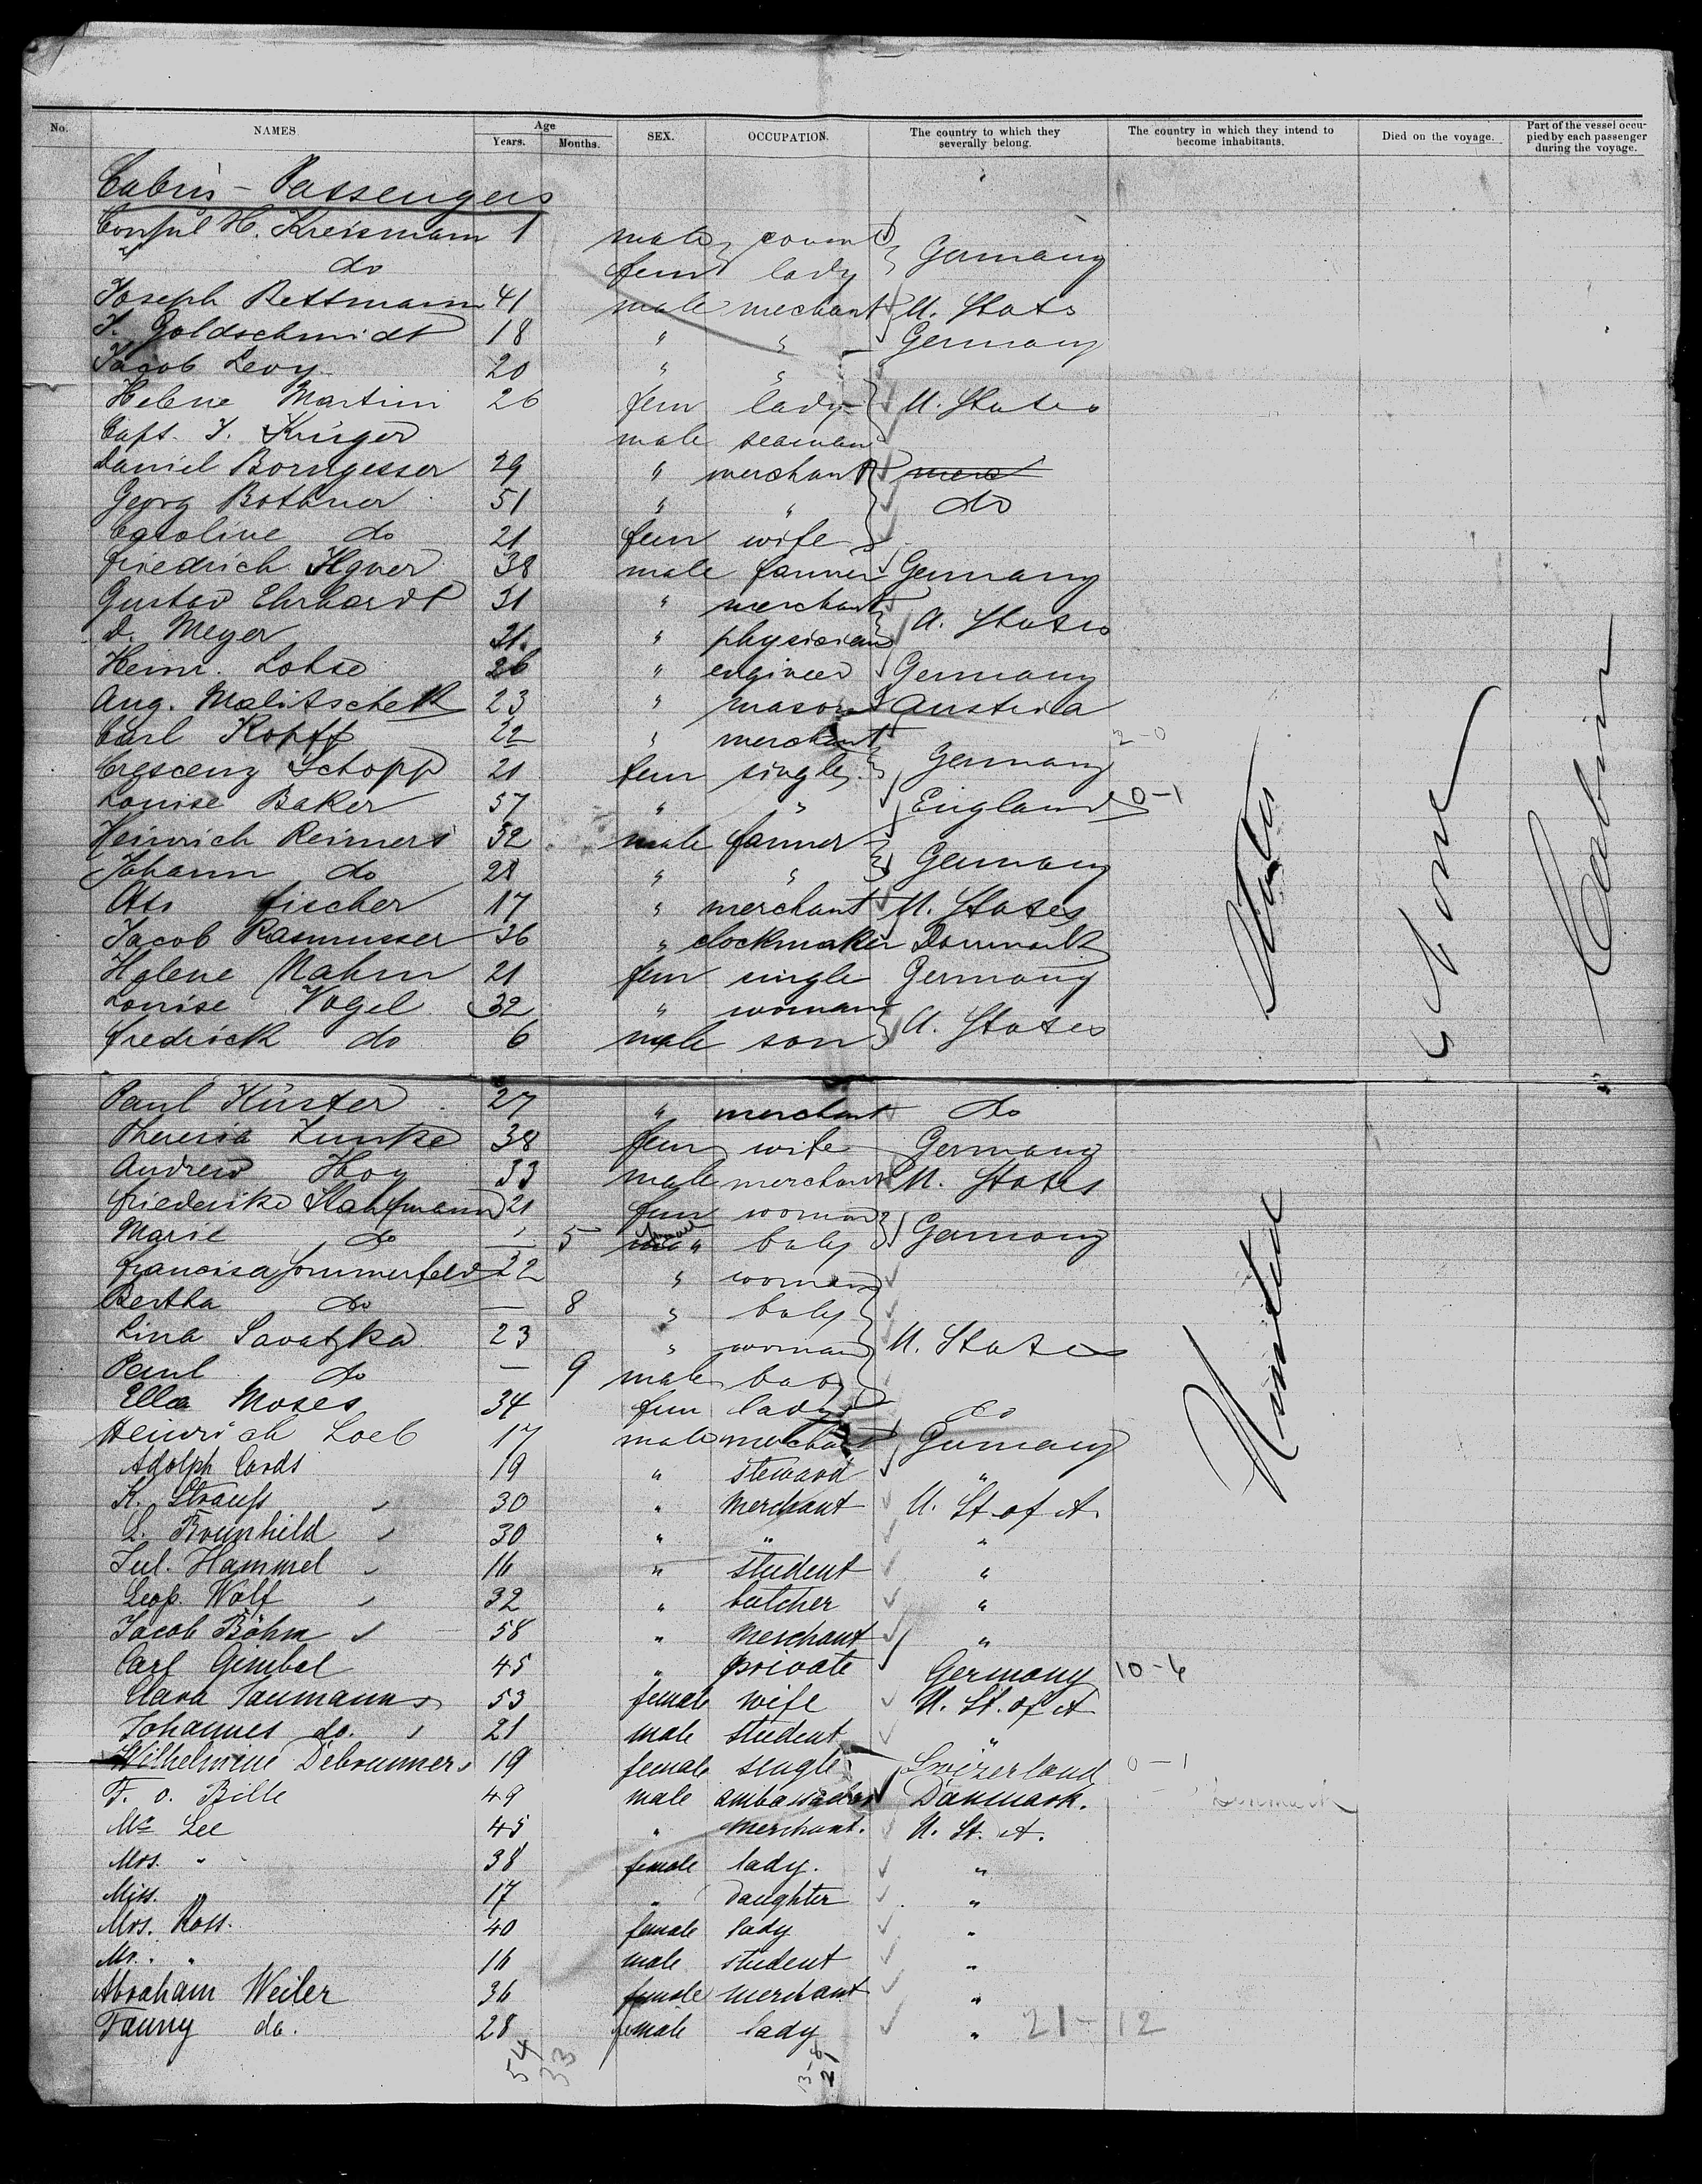 No. NAMES Age Years. Months. SEX. OCCUPATION. The country to which they severally belong. The country in which they intend to become inhabitants. Died on the voyage. Part of the vessel occupied by each passenger during the voyage.
Cabin - Passengers
Consul H. Kreismann 1 male Germany
" do fem lady
Joseph Bettmann 41 male mechant U. States
J. Goldschmidt 18 " " Germany
Jacob Levy 20 " "
Helene Martini 26 fem lady U. States
Capt. J. Krüger male seaman
Daniel Borngesser 29 " merchant
Georg Bothner 51 " " do
Caroline do 21 fem wife
Friedrich 38 male farmer Germany
Gustav Ehrhardt 31 " merchant U. States
D. Meyer 21 " physician
Heinr. Lohse 26 " engineer Germany
Aug. Malitschek 23 " mason Austria
Carl Kopff 22 " merchant Germany 2-0
Crescenz Schopp 21 fem single
Louise Baker 57 " " England 0-1
Heinrich Reimers 32 male farmer Germany
Johann do 28 " "
Otto Fischer 17 " merchant U. States
Jacob Rasmussen 36 " clockmaker Danmark
Helene Mahm 21 fem single Germany
Louise Vogel 32 " woman U. States
Fredrick do 6 male son
States
None
Cabin
Paul Küster 27 " merchant do
Theresia Lunke 38 fem wife Germany
Andrew Hoy 33 male merchant U. States
Friederike 21 fem woman Germany
Marie do 5 " baby
Francisca Sommerfeld 22 " woman
Bertha do — 8 " baby
Lina Savatzka 23 " woman U. States
Paul do — 9 male baby
Ella Moses 34 fem lady do
Heinrich Loeb 17 male merchant Germany
Adolph Cords 19 " steward "
K. Strauss 30 " Merchant U. St. of A.
L. Brunhild 30 " " "
Jul. Hammel 16 " student "
Leop. Wolf 32 " butcher "
Jacob Böhm 58 " Merchant "
Carl Gimbel 45 " private Germany 10-6
Clara Taumanns 53 female wife U. St. of A
Johannes do. 21 male student "
Wilhelmine Debrunner 19 female single Swizerland 0-1
F. o. Bille 49 male ambassador Danmark. Denmark
Mr Lee 45 " merchant. U. St. A.
Mrs. " 38 female lady. "
Miss. " 17 " daughter "
Mrs. Ross. 40 female lady "
Mr. " 16 male student "
Abraham Weiler 36 female merchant "
Fanny do. 28 female lady " 21-12
United
54 33
3-8
21